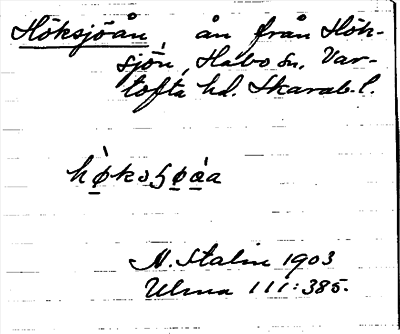 Höksjöån, ån från Hök-
sjön, Habo sn, Var-
tofta hd. Skarab. l.
hø̀ksɧøa̠a
N. Stalin 1903
Ulma 111:385.